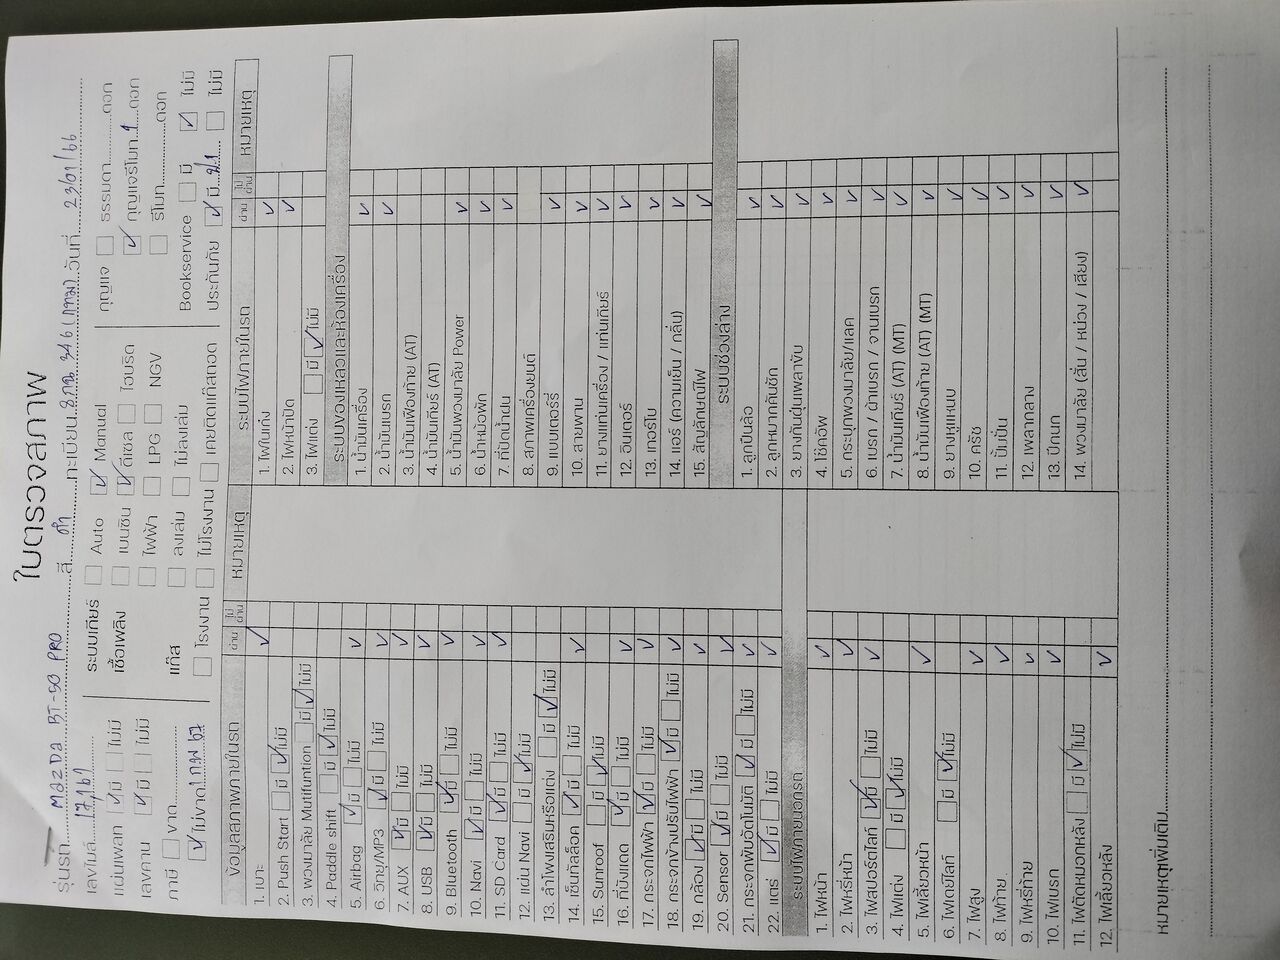 ใบตรวจสภาพ
รุ่นรถ MAZDA BT-50 PRO สี ดำ ทะเบียน 346 (กทม) วันที่ 23/01/66
เลขไมล์
แผ่นเพลท ☑ มี ☐ ไม่มี
เลขถาน ☑ มี ☐ ไม่มี
ภาษี ☐ ขาด
☑ ไม่ขาด
ระบบเกียร์ ☐ Auto ☑ Manual
เชื้อเพลิง ☐ เบนซิน ☑ ดีเซล ☐ ไฮบริด
☐ ไฟฟ้า ☐ LPG ☐ NGV
แก๊ส ☐ ลงเล่ม ☐ ไม่ลงเล่ม
☐ โรงงาน ☐ ไม่โรงงาน ☐ เคยติดแก๊สถอด
กุญแจ ☐ ธรรมดา ดอก
☑ กุญแจรีโมท 1 ดอก
☐ รีโมท ดอก
Bookservice ☐ มี ☑ ไม่มี
ประกันภัย ☑ มี ป.1 ☐ ไม่มี
ข้อมูลสภาพภายในรถ ผ่าน ไม่ผ่าน หมายเหตุ
1. เบาะ ✓
2. Push Start ☐ มี ☑ ไม่มี
3. พวงมาลัย Mutifuntion ☐ มี ☑ ไม่มี
4. Paddle shift ☐ มี ☑ ไม่มี
5. Airbag ☑ มี ☐ ไม่มี ✓
6. วิทยุ/MP3 ☑ มี ☐ ไม่มี ✓
7. AUX ☑ มี ☐ ไม่มี ✓
8. USB ☑ มี ☐ ไม่มี ✓
9. Bluetooth ☑ มี ☐ ไม่มี ✓
10. Navi ☑ มี ☐ ไม่มี ✓
11. SD Card ☑ มี ☐ ไม่มี ✓
12. แผ่น Navi ☐ มี ☑ ไม่มี
13. ลำโพงเสริมหรือแต่ง ☐ มี ☑ ไม่มี
14. เซ็นทัลล็อค ☑ มี ☐ ไม่มี ✓
15. Sunroof ☐ มี ☑ ไม่มี
16. ที่บังแดด ☑ มี ☐ ไม่มี ✓
17. กระจกไฟฟ้า ☑ มี ☐ ไม่มี ✓
18. กระจกข้างปรับไฟฟ้า ☑ มี ☐ ไม่มี ✓
19. กล้อง ☑ มี ☐ ไม่มี ✓
20. Sensor ☑ มี ☐ ไม่มี ✓
21. กระจกพับอัตโนมัติ ☑ มี ☐ ไม่มี ✓
22. แตร ☑ มี ☐ ไม่มี ✓
ระบบไฟภายนอกรถ
1. ไฟหน้า ✓
2. ไฟหรี่หน้า ✓
3. ไฟสปอร์ตไลท์ ☑ มี ☐ ไม่มี ✓
4. ไฟแต่ง ☐ มี ☑ ไม่มี
5. ไฟเลี้ยวหน้า ✓
6. ไฟเดย์ไลท์ ☐ มี ☑ ไม่มี
7. ไฟสูง ✓
8. ไฟท้าย ✓
9. ไฟหรี่ท้าย ✓
10. ไฟเบรก ✓
11. ไฟตัดหมอกหลัง ☐ มี ☑ ไม่มี
12. ไฟเลี้ยวหลัง ✓
ระบบไฟภายในรถ ผ่าน ไม่ผ่าน หมายเหตุ
1. ไฟในเก๋ง ✓
2. ไฟหน้าปัด ✓
3. ไฟแต่ง ☐ มี ☑ ไม่มี
ระบบของเหลวและห้องเครื่อง
1. น้ำมันเครื่อง ✓
2. น้ำมันเบรก ✓
3. น้ำมันเฟืองท้าย (AT)
4. น้ำมันเกียร์ (AT)
5. น้ำมันพวงมาลัย Power ✓
6. น้ำหม้อพัก ✓
7. ที่ปัดน้ำฝน ✓
8. สภาพเครื่องยนต์
9. แบตเตอร์รี่ ✓
10. สายพาน ✓
11. ยางแท่นเครื่อง / แท่นเกียร์ ✓
12. อินเตอร์ ✓
13. เทอร์โบ ✓
14. แอร์ (ความเย็น / กลิ่น) ✓
15. สัญลักษณ์ไฟ ✓
ระบบช่วงล่าง
1. ลูกปืนล้อ ✓
2. ลูกหมากคันชัก ✓
3. ยางกันฝุ่นเพลาขับ ✓
4. โช้คอัพ ✓
5. กระปุกพวงมาลัย/แลค ✓
6. เบรก / ผ้าเบรก / จานเบรก ✓
7. น้ำมันเกียร์ (AT) (MT) ✓
8. น้ำมันเฟืองท้าย (AT) (MT) ✓
9. ยางหูแหนบ ✓
10. ครัช ✓
11. ปั๊มปั่น ✓
12. เพลากลาง ✓
13. ปีกนก ✓
14. พวงมาลัย (สั่น / หน่วง / เสียง) ✓
หมายเหตุเพิ่มเติม